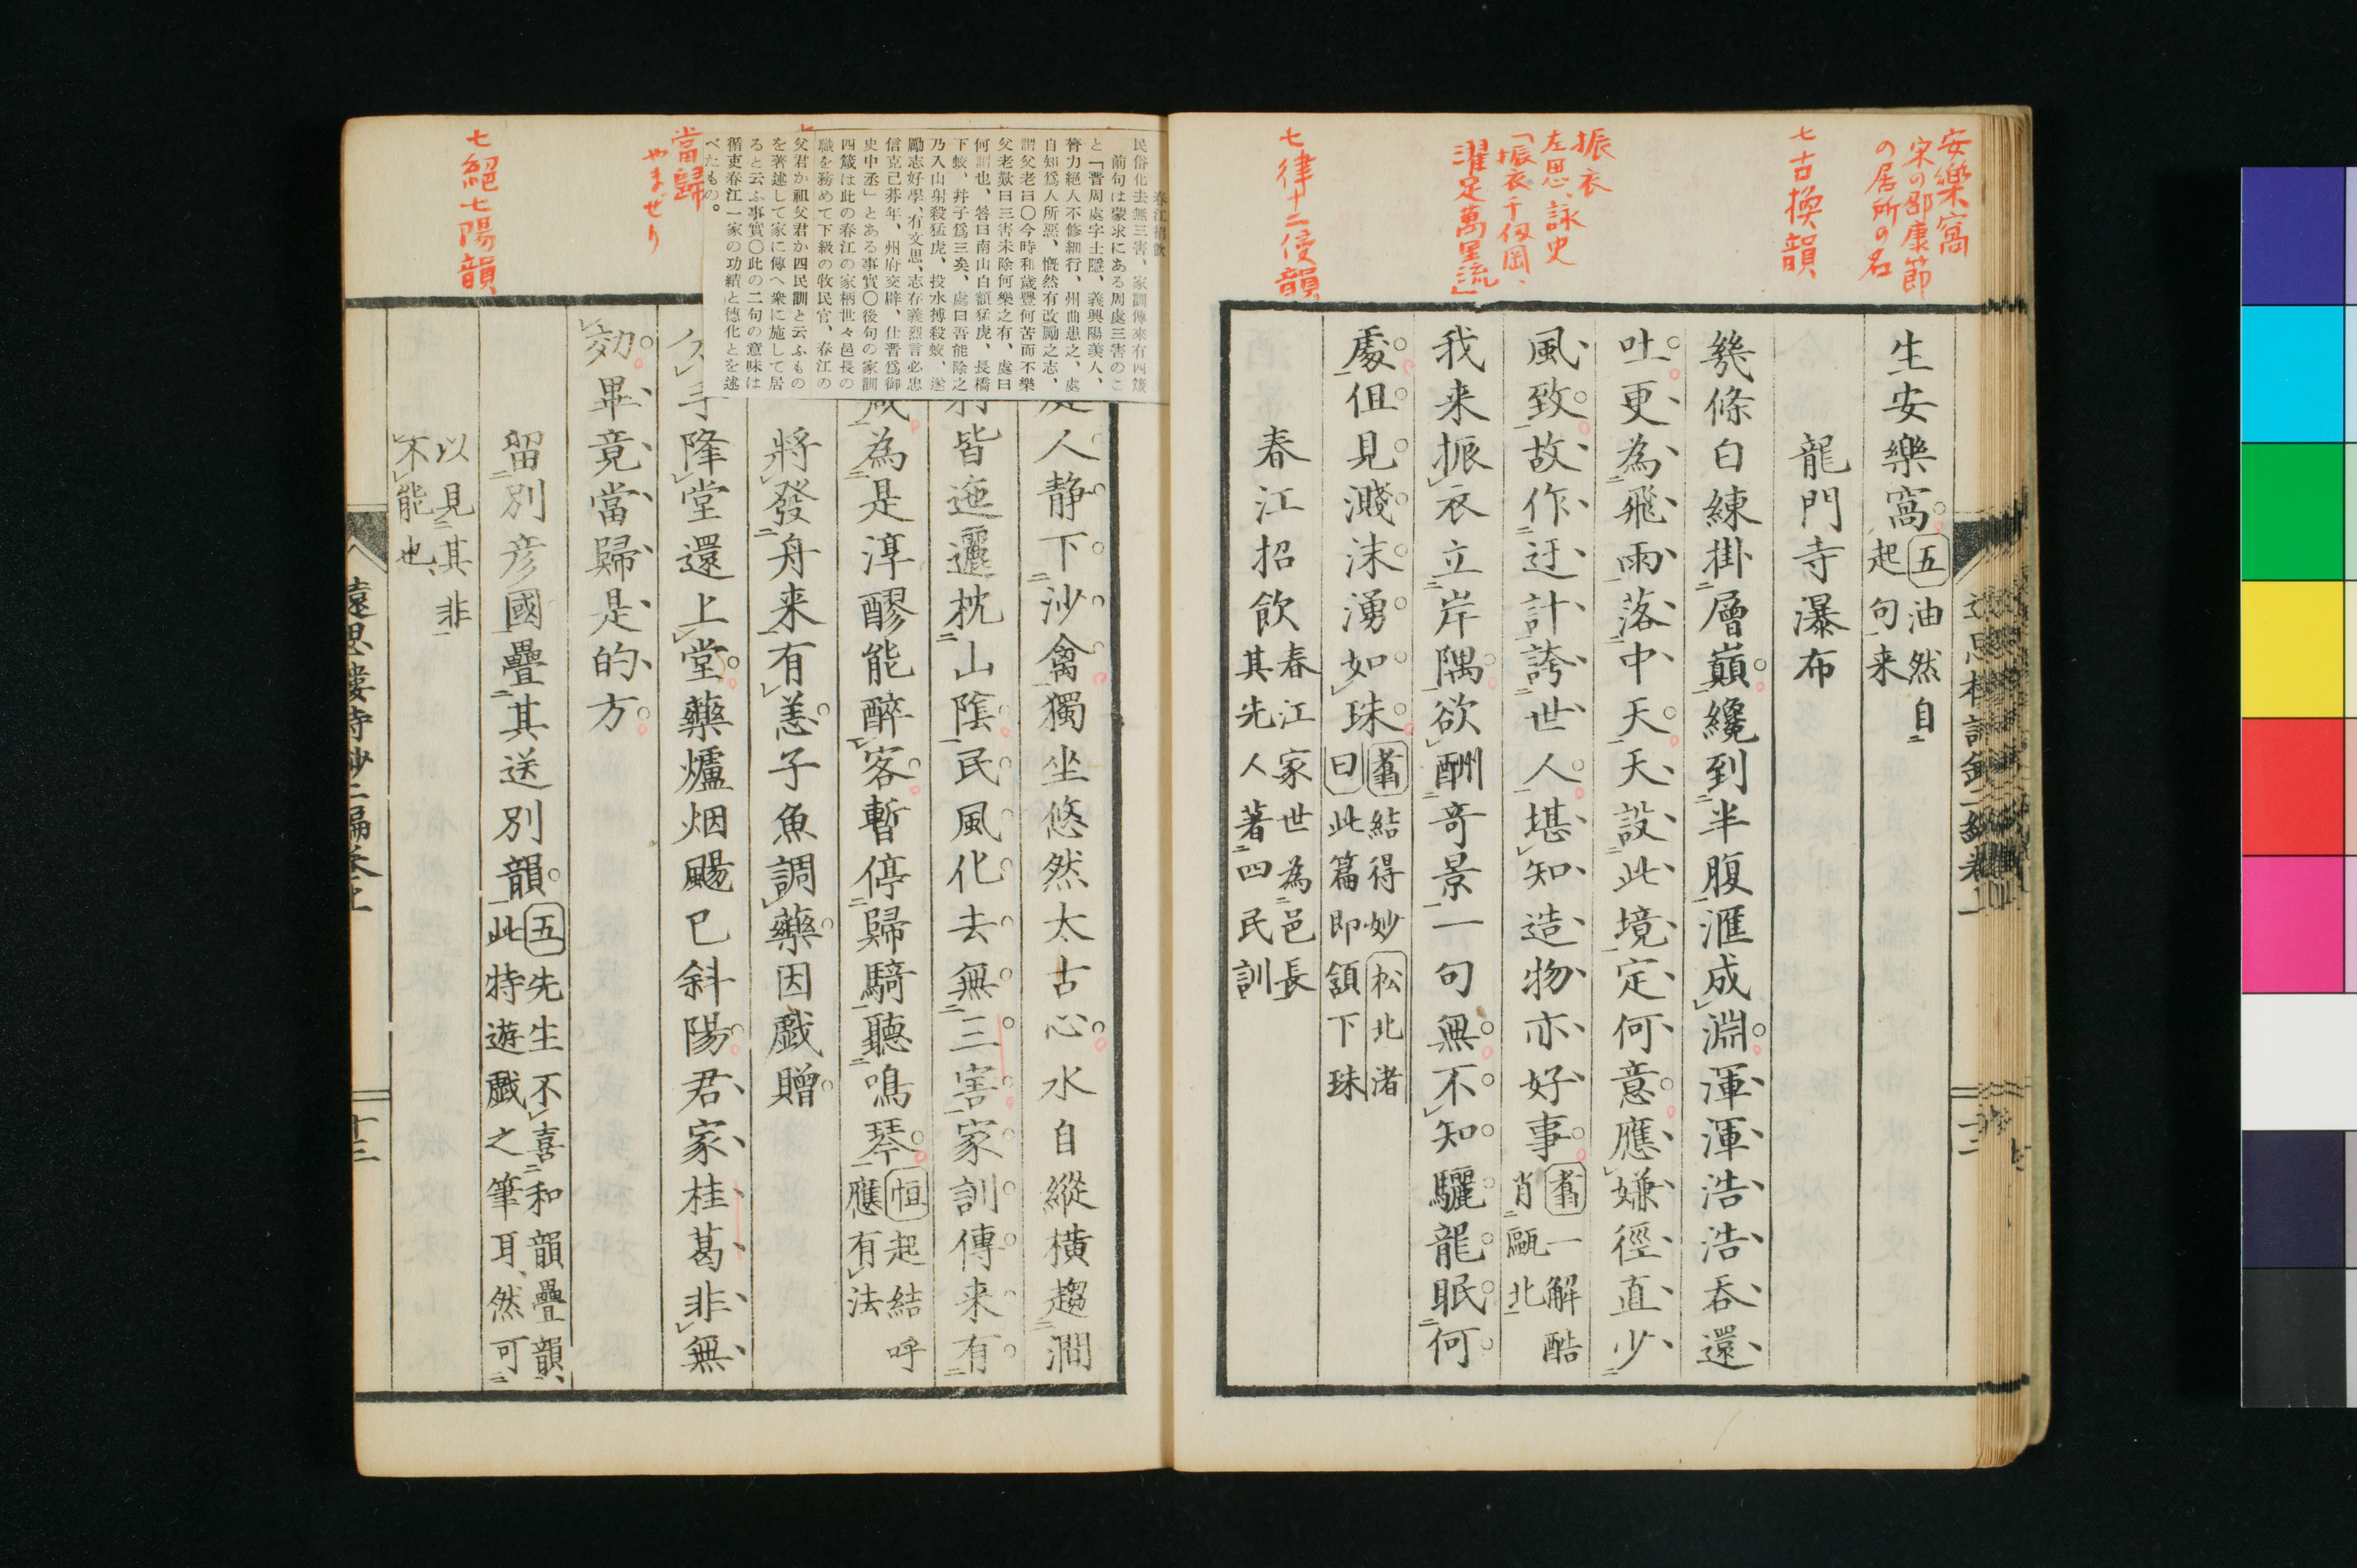 安樂窩
宋の邵康節
の居所の名
七古換韻
振衣
左思、詠史
「振衣千仭岡、
濯足萬里流」
七律十二侵韻
生安樂窩五油然自
起句来
龍門寺瀑布
幾條白練掛層巔纔到半腹滙成淵渾渾浩浩吞還
吐更為飛雨落中天天設此境定何意應嫌徑直少
風致故作迂計誇世人堪知造物亦好事蓊一解酷
肖甌北
我来振衣立岸隅欲酬奇景一句無不知驪龍眠何
處但見濺沫湧如珠蓊結得妙松北渚
曰此篇即頷下珠
春江招飲春江家世為邑長
其先人著四民訓
春江招飲
民俗化去無三害、家訓傳來有四箴
前句は蒙求にある周處三害のこ
と「晋周處字士隱、義興陽羨人、
膂力絕人不修細行、州曲患之、處
自知爲人所惡、慨然有改勵之志、
謂父老曰〇今時和歲豐何苦而不樂
父老歎曰三害未除何樂之有、處曰
何謂也、答曰南山白額猛虎、長橋
下蛟、并子爲三矣、處曰吾能除之
乃入山射殺猛虎、投水搏殺蛟、遂
勵志好學、有文思、志存義烈言必忠
信克己朞年、州府交辟、仕晋爲御
史中丞」とある事實〇後句の家訓
四箴は此の春江の家柄世々邑長の
職を務めて下級の牧民官、春江の
父君か祖父君か四民訓と云ふもの
を著述して家に傳へ衆に施して居
ると云ふ事實〇此の二句の意味は
循吏春江一家の功績と德化とを述
べたもの。
當歸
やまぜり
七絕七陽韻
人静下沙禽獨坐悠然太古心水自縱橫趨澗
皆迤邐枕山陰民風化去無三害家訓傳来有
為是淳醪能醉客暫停歸騎聽鳴琴恒起結呼
應有法
將發舟来有恙子魚調藥因戯贈
手隆堂還上堂藥爐烟颺已斜陽君家桂葛非無
効畢竟當歸是的方
留別彦國疊其送別韻五先生不喜和韻疊韻、
此特遊戯之筆耳、然可
以見其非
不能也、
遠思樓詩鈔二編卷上
十三